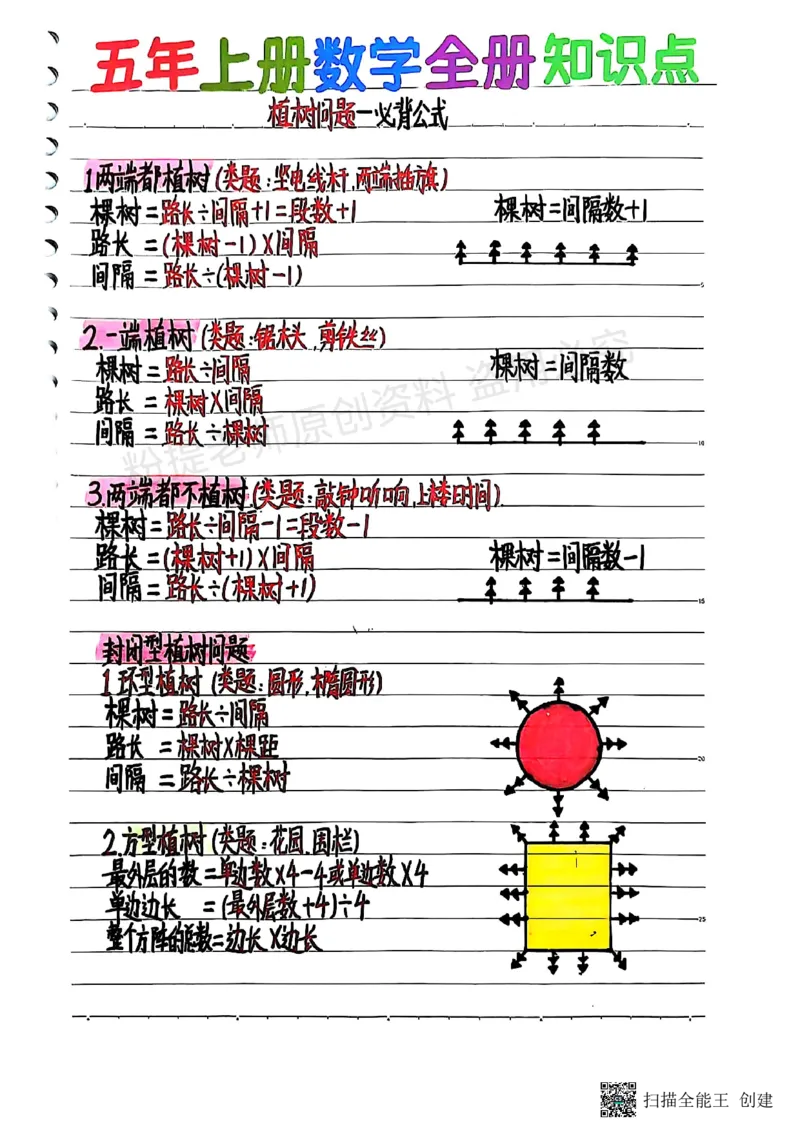 五年上册数学全册知识点
植树问题一必背公式
1两端都植树(类题:坐电线杆,两端插旗)
棵树=路长÷间隔+1=段数+1
棵树=间隔数+1
路长=(棵树-1)×间隔
间隔=路长÷(棵树-1)
2.一端植树(类题:锯木头,剪铁丝)
棵树=路长÷间隔
棵树=间隔数
路长=棵树×间隔
间隔=路长÷棵树
粉提老师原创资料 盗用必究
3.两端都不植树(类题:敲钟听响,上楼时间)
棵树=路长÷间隔-1=段数-1
路长=(棵树+1)×间隔
棵树=间隔数-1
间隔=路长÷(棵树+1)
封闭型植树问题
1环型植树(类题:圆形,椭圆形)
棵树=路长÷间隔
路长=棵树×棵距
间隔=路长÷棵树
2.方型植树(类题:花园.围栏)
最外层的数=单边数×4-4或单边数×4
单边边长=(最外层数+4)÷4
整个方阵的总数=边长×边长
5
10
15
20
25
扫描全能王 创建